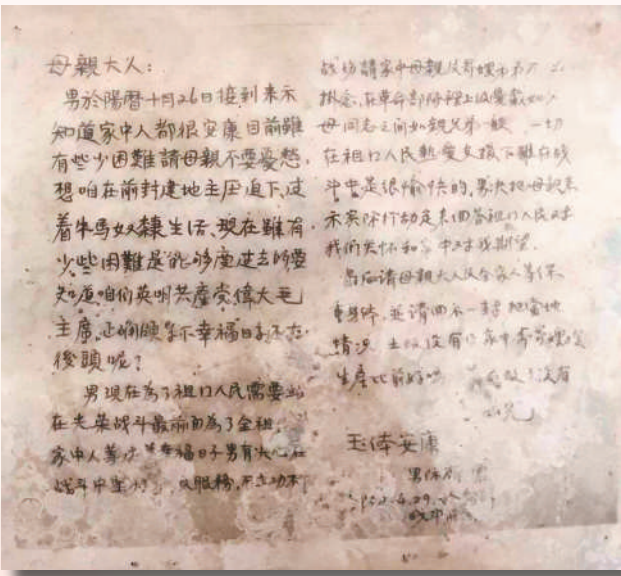 母親大人：
男於陽曆十月26日接到來示
知道家中人都很安康目前雖
有些少困難請母親不要憂愁，
想咱在前封建地主压迫下，过
着牛馬奴隸生活，現在雖有
少些困難是能够度过去的要
知道咱們英明共產党偉大毛
主席，正確領導下幸福日子还在
後頭呢？
男現在為了祖囗人民需要站
在光荣战斗最前面為了全祖
家中人等 幸福日子男有决心在
战斗中 立功 服務，不立功不
战场請家中母親及哥嫂
掛念，在革命部隊裡上級愛戴如父
母同志之间如親兄弟一般，一切
在祖囗人民熱愛支援下雖在战
斗中是很愉快的，男决把母親來
示实际行动是来回答祖囗人民对
我們关怀和家中对我期望。
最后請母親大人及全家人等保
重身体，並請回示一封把當地
情况 没有 家中哥哥嫂嫂
生產比前好 没有
玉体安康
男